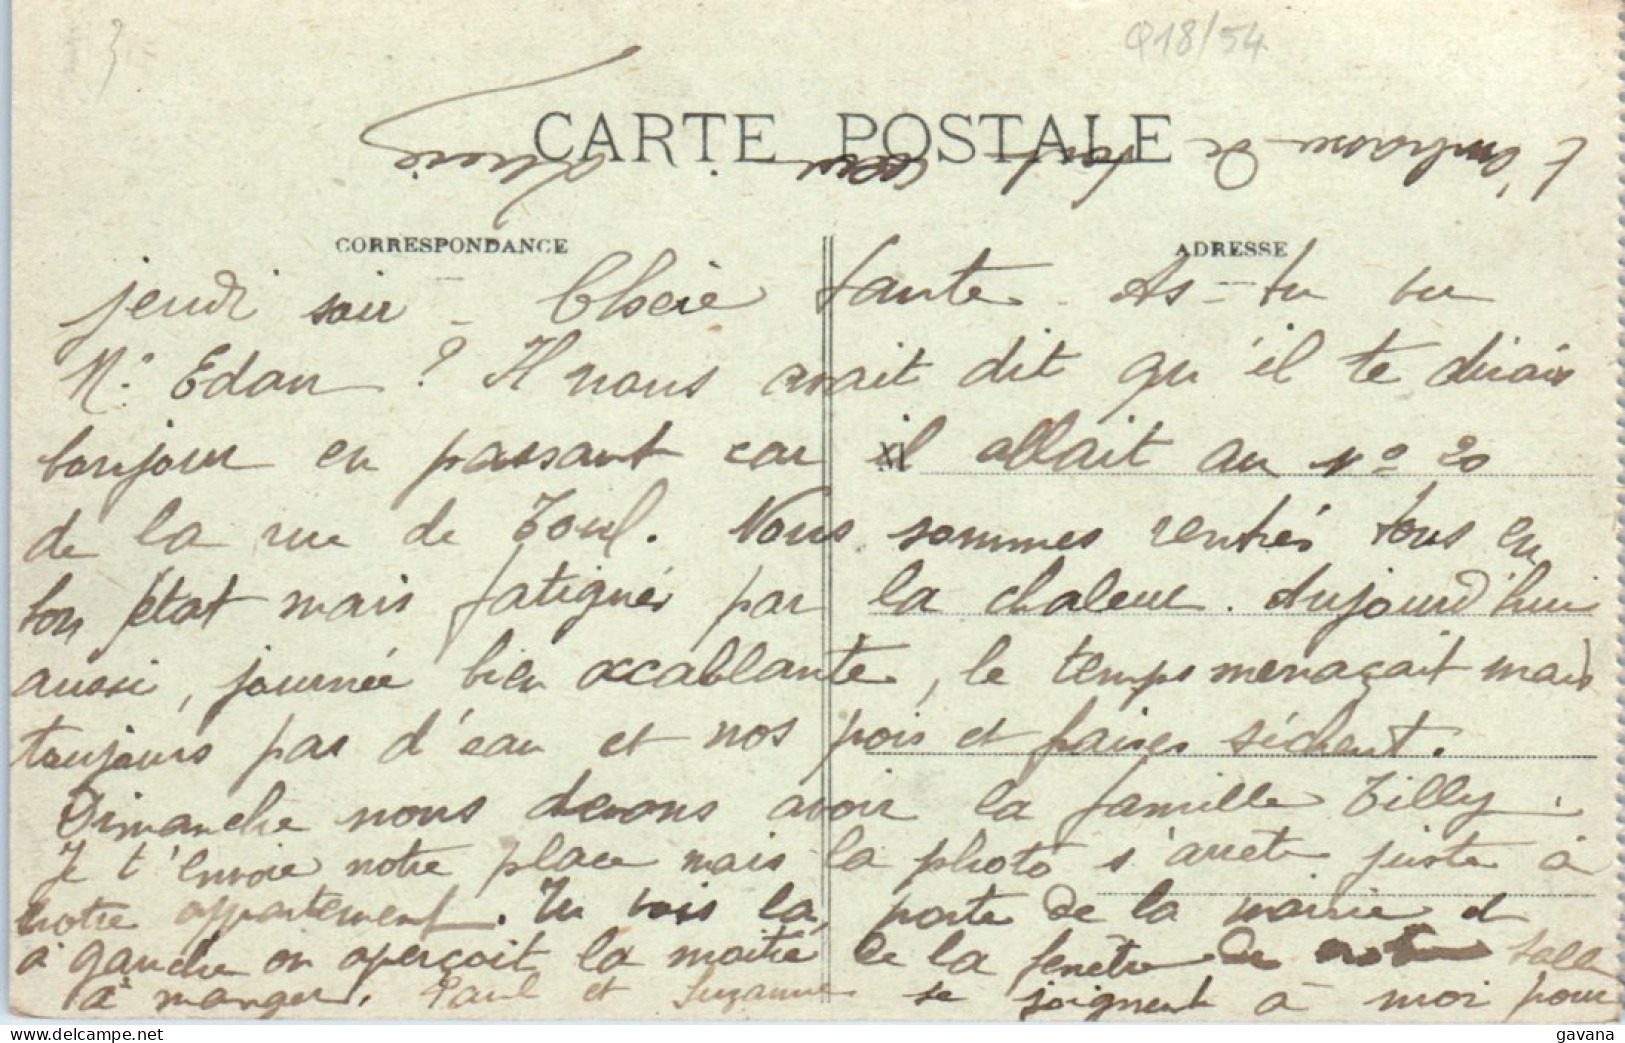 Q18/54
CARTE POSTALE
CORRESPONDANCE
ADRESSE
jeudi soir - Chère tante - As-tu vu
Mr Edan ? Il nous avait dit qu'il te dirait
bonjour en passant car il allait au No 20
de la rue de Toul. Nous sommes rentrés tous en
bon état mais fatigués par la chaleur. Aujourd'hui
aussi, journée bien accablante, le temps menaçait mais
toujours pas d'eau et nos pois et fraises sèchent.
Dimanche nous devons avoir la famille Tilly.
Je t'envoie notre place mais la photo s'arrête juste à
notre appartement. Tu vois la porte de la mairie et
à gauche on aperçoit la moitié de la fenêtre de salle
à manger. Paul et Suzanne se joignent à moi pour
t'embrasser de tout cœur.
gavana